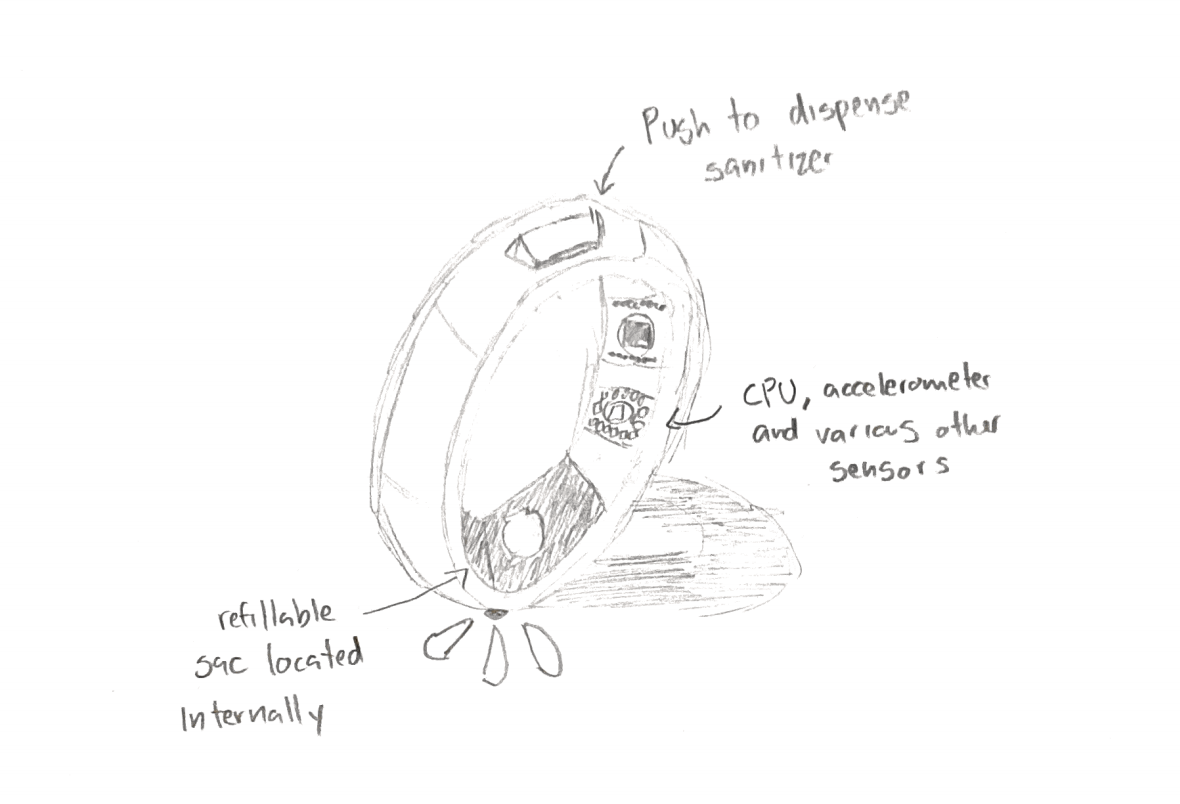 Push to dispense
sanitizer
CPU, accelerometer
and various other
sensors
refillable
sac located
Internally